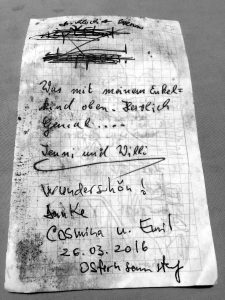 Was mit meinem Enkel=
kind oben. Herzlich
Genial....
Jenni und Willi
wunderschön!
Danke
Cosmina u. Emil
26.03.2016
Ostern